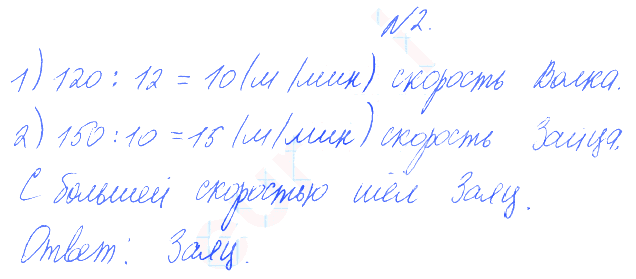 №2.
1) 120 : 12 = 10 (м/мин) скорость Волка.
2) 150 : 10 = 15 (м/мин) скорость Зайца.
С большей скоростью шёл Заяц.
Ответ: Заяц.